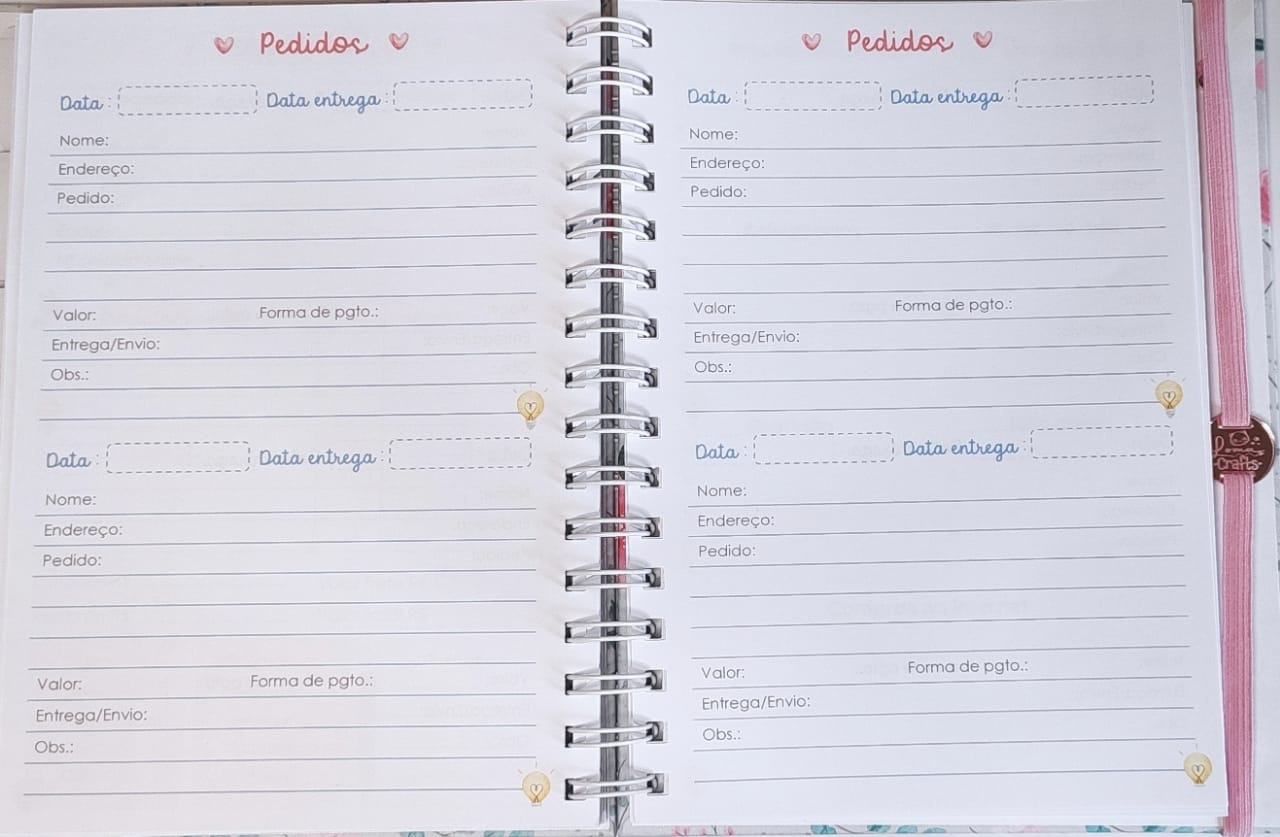 Pedidos
Data : Data entrega :
Nome:
Endereço:
Pedido:
Valor: Forma de pgto.:
Entrega/Envio:
Obs.:
Data : Data entrega :
Nome:
Endereço:
Pedido:
Valor: Forma de pgto.:
Entrega/Envio:
Obs.:
Pedidos
Data : Data entrega :
Nome:
Endereço:
Pedido:
Valor: Forma de pgto.:
Entrega/Envio:
Obs.:
Data : Data entrega :
Nome:
Endereço:
Pedido:
Valor: Forma de pgto.:
Entrega/Envio:
Obs.:
Crafts